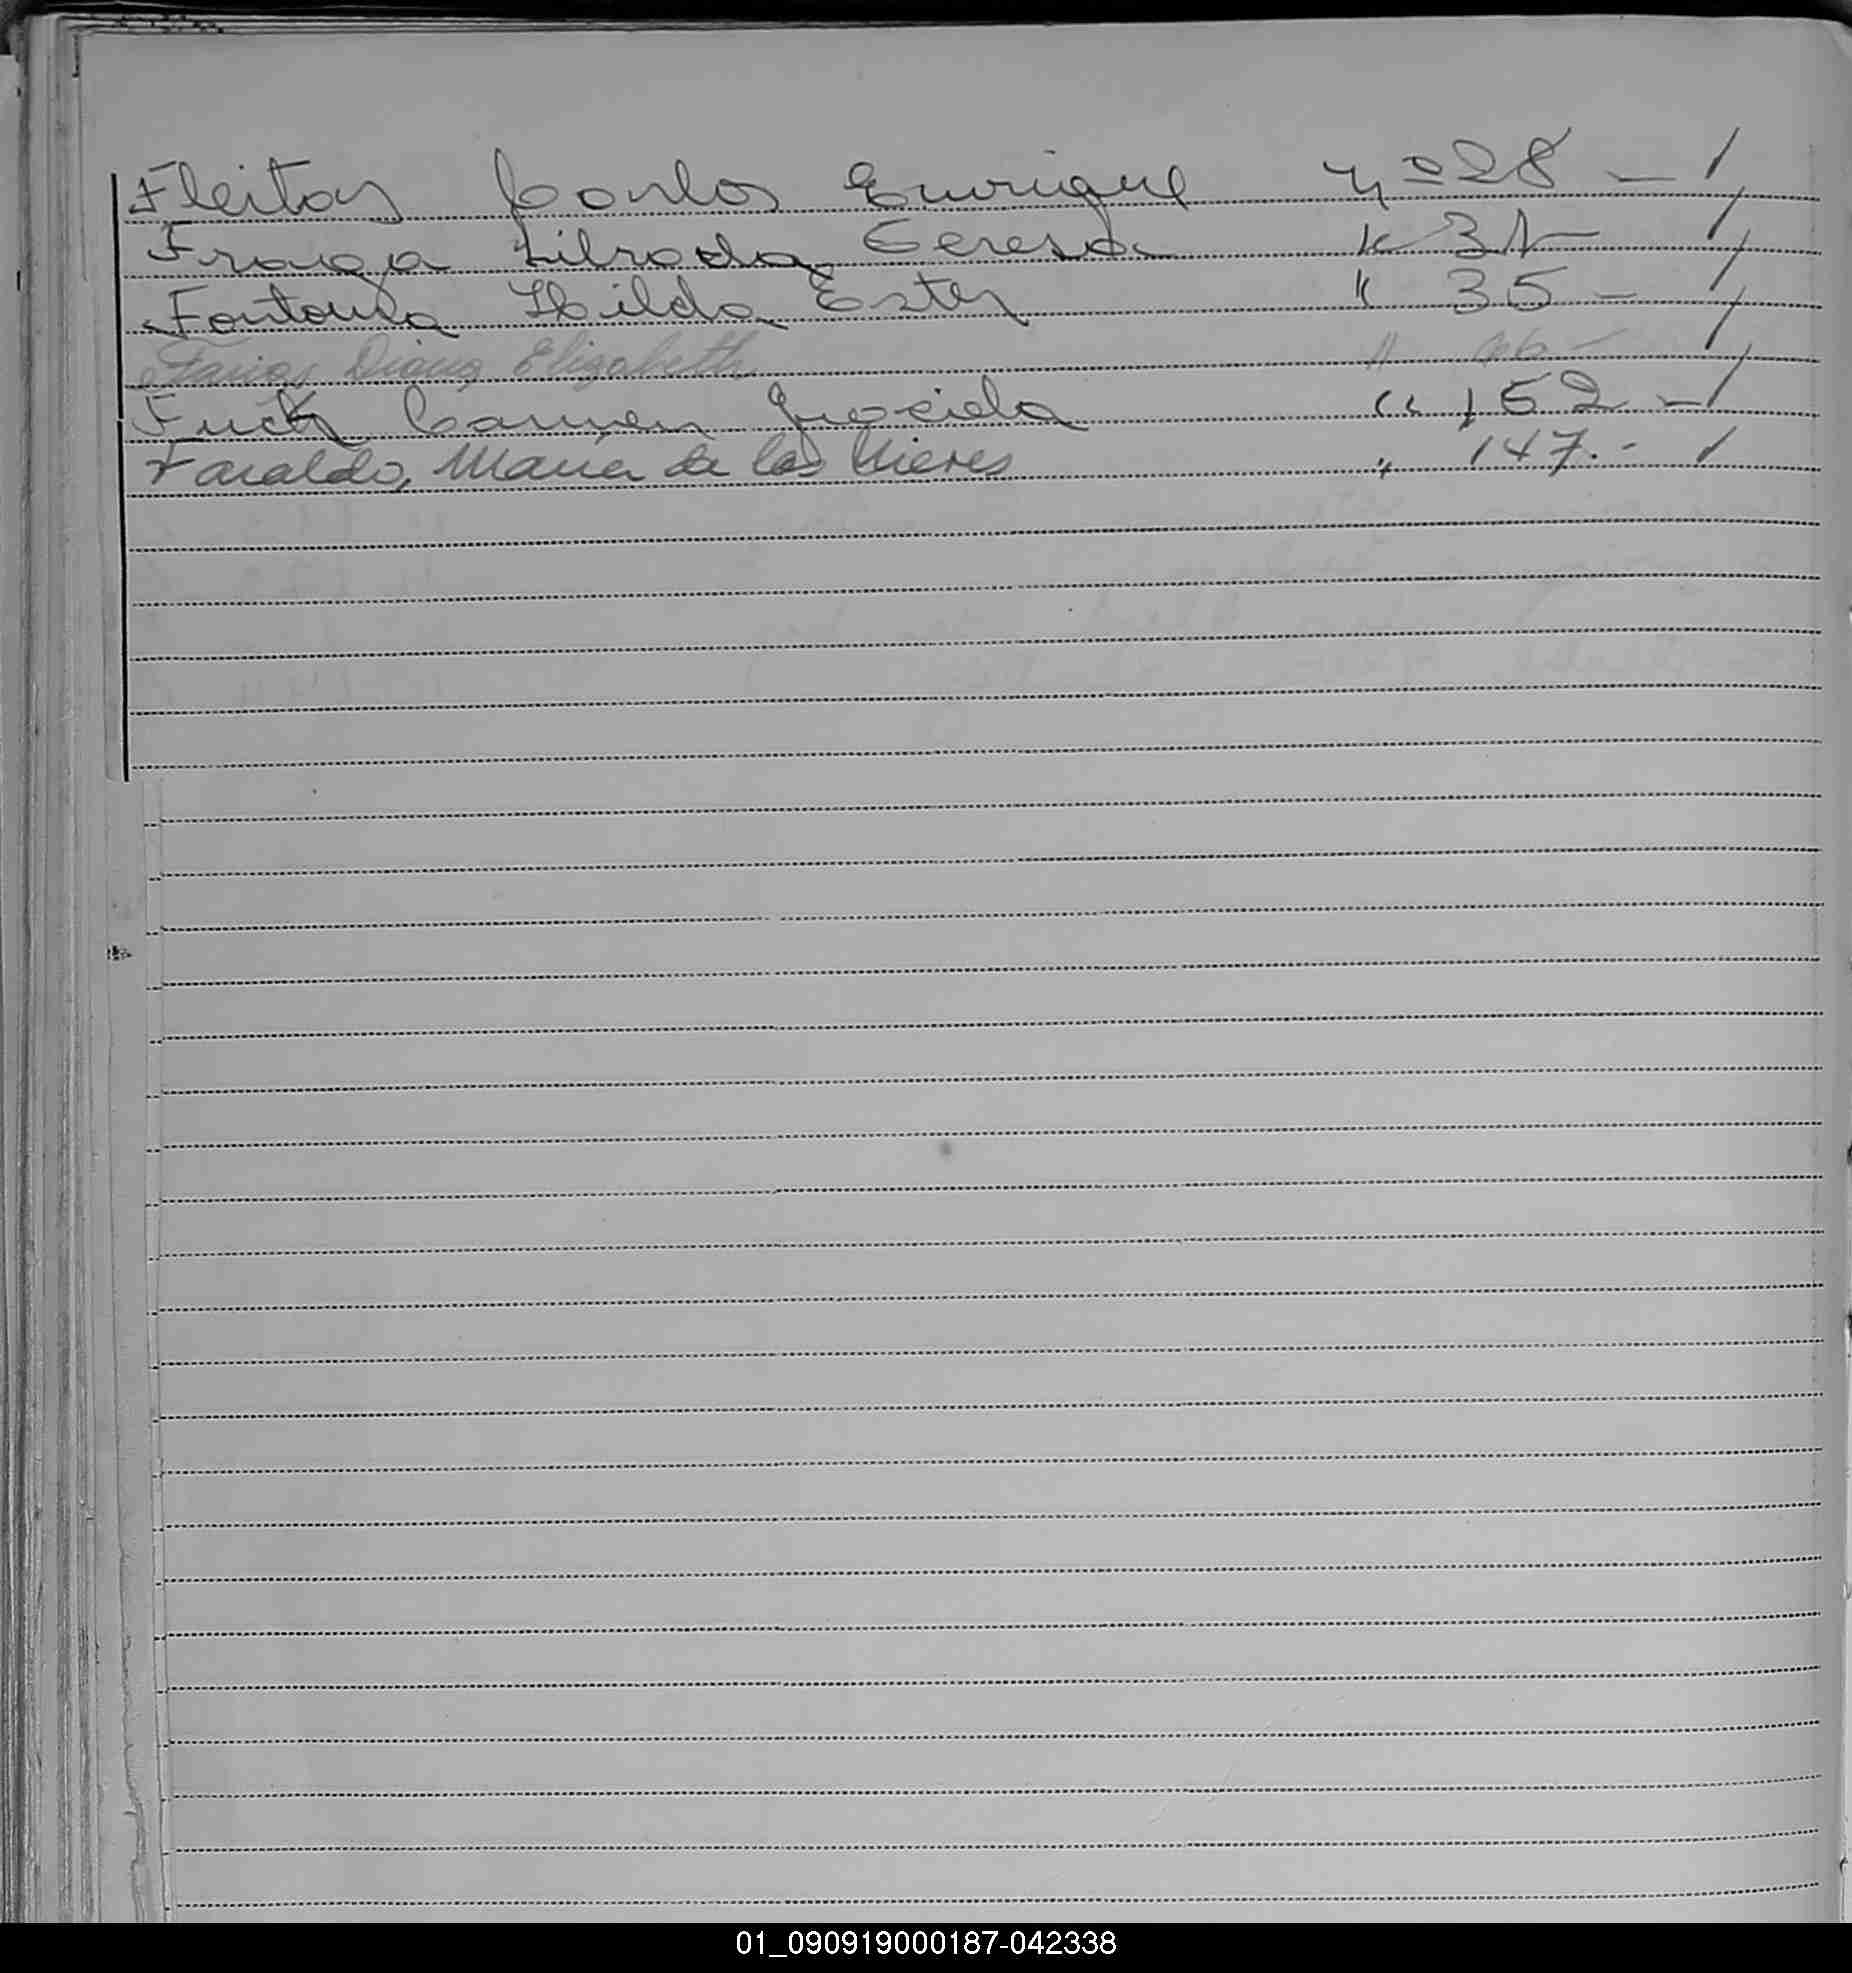 Fleitas Carlos Enrique nº 28 – 1
Fraga Librada Teresa " 31 – 1
Fontoura Hilda Ester " 35 – 1
Farias Diana Elizabeth " 46 – 1
Fuck Carmen Gracida " 152 – 1
Faraldo, Maria de las Nieves " 147. – 1
01_090919000187-042338